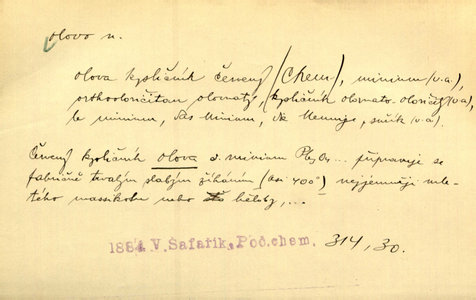 olovo n.
olova kysličník červený (Chem.), minium (v.a.),
orthoolovičitan olovnatý, kysličník olovnato-olovičitý (v.a.)
le minium, das Minium, die Mennige, suřík (v.a.)
Červený kysličník olova a. minium Pb₃O₄... připravuje se
fabričně trvalým slabým žíháním (asi 400°) nejjemněji mle-
tého massikotu nebo běloby,...
1884 V. Šafařík, Poč.chem. 314, 30.